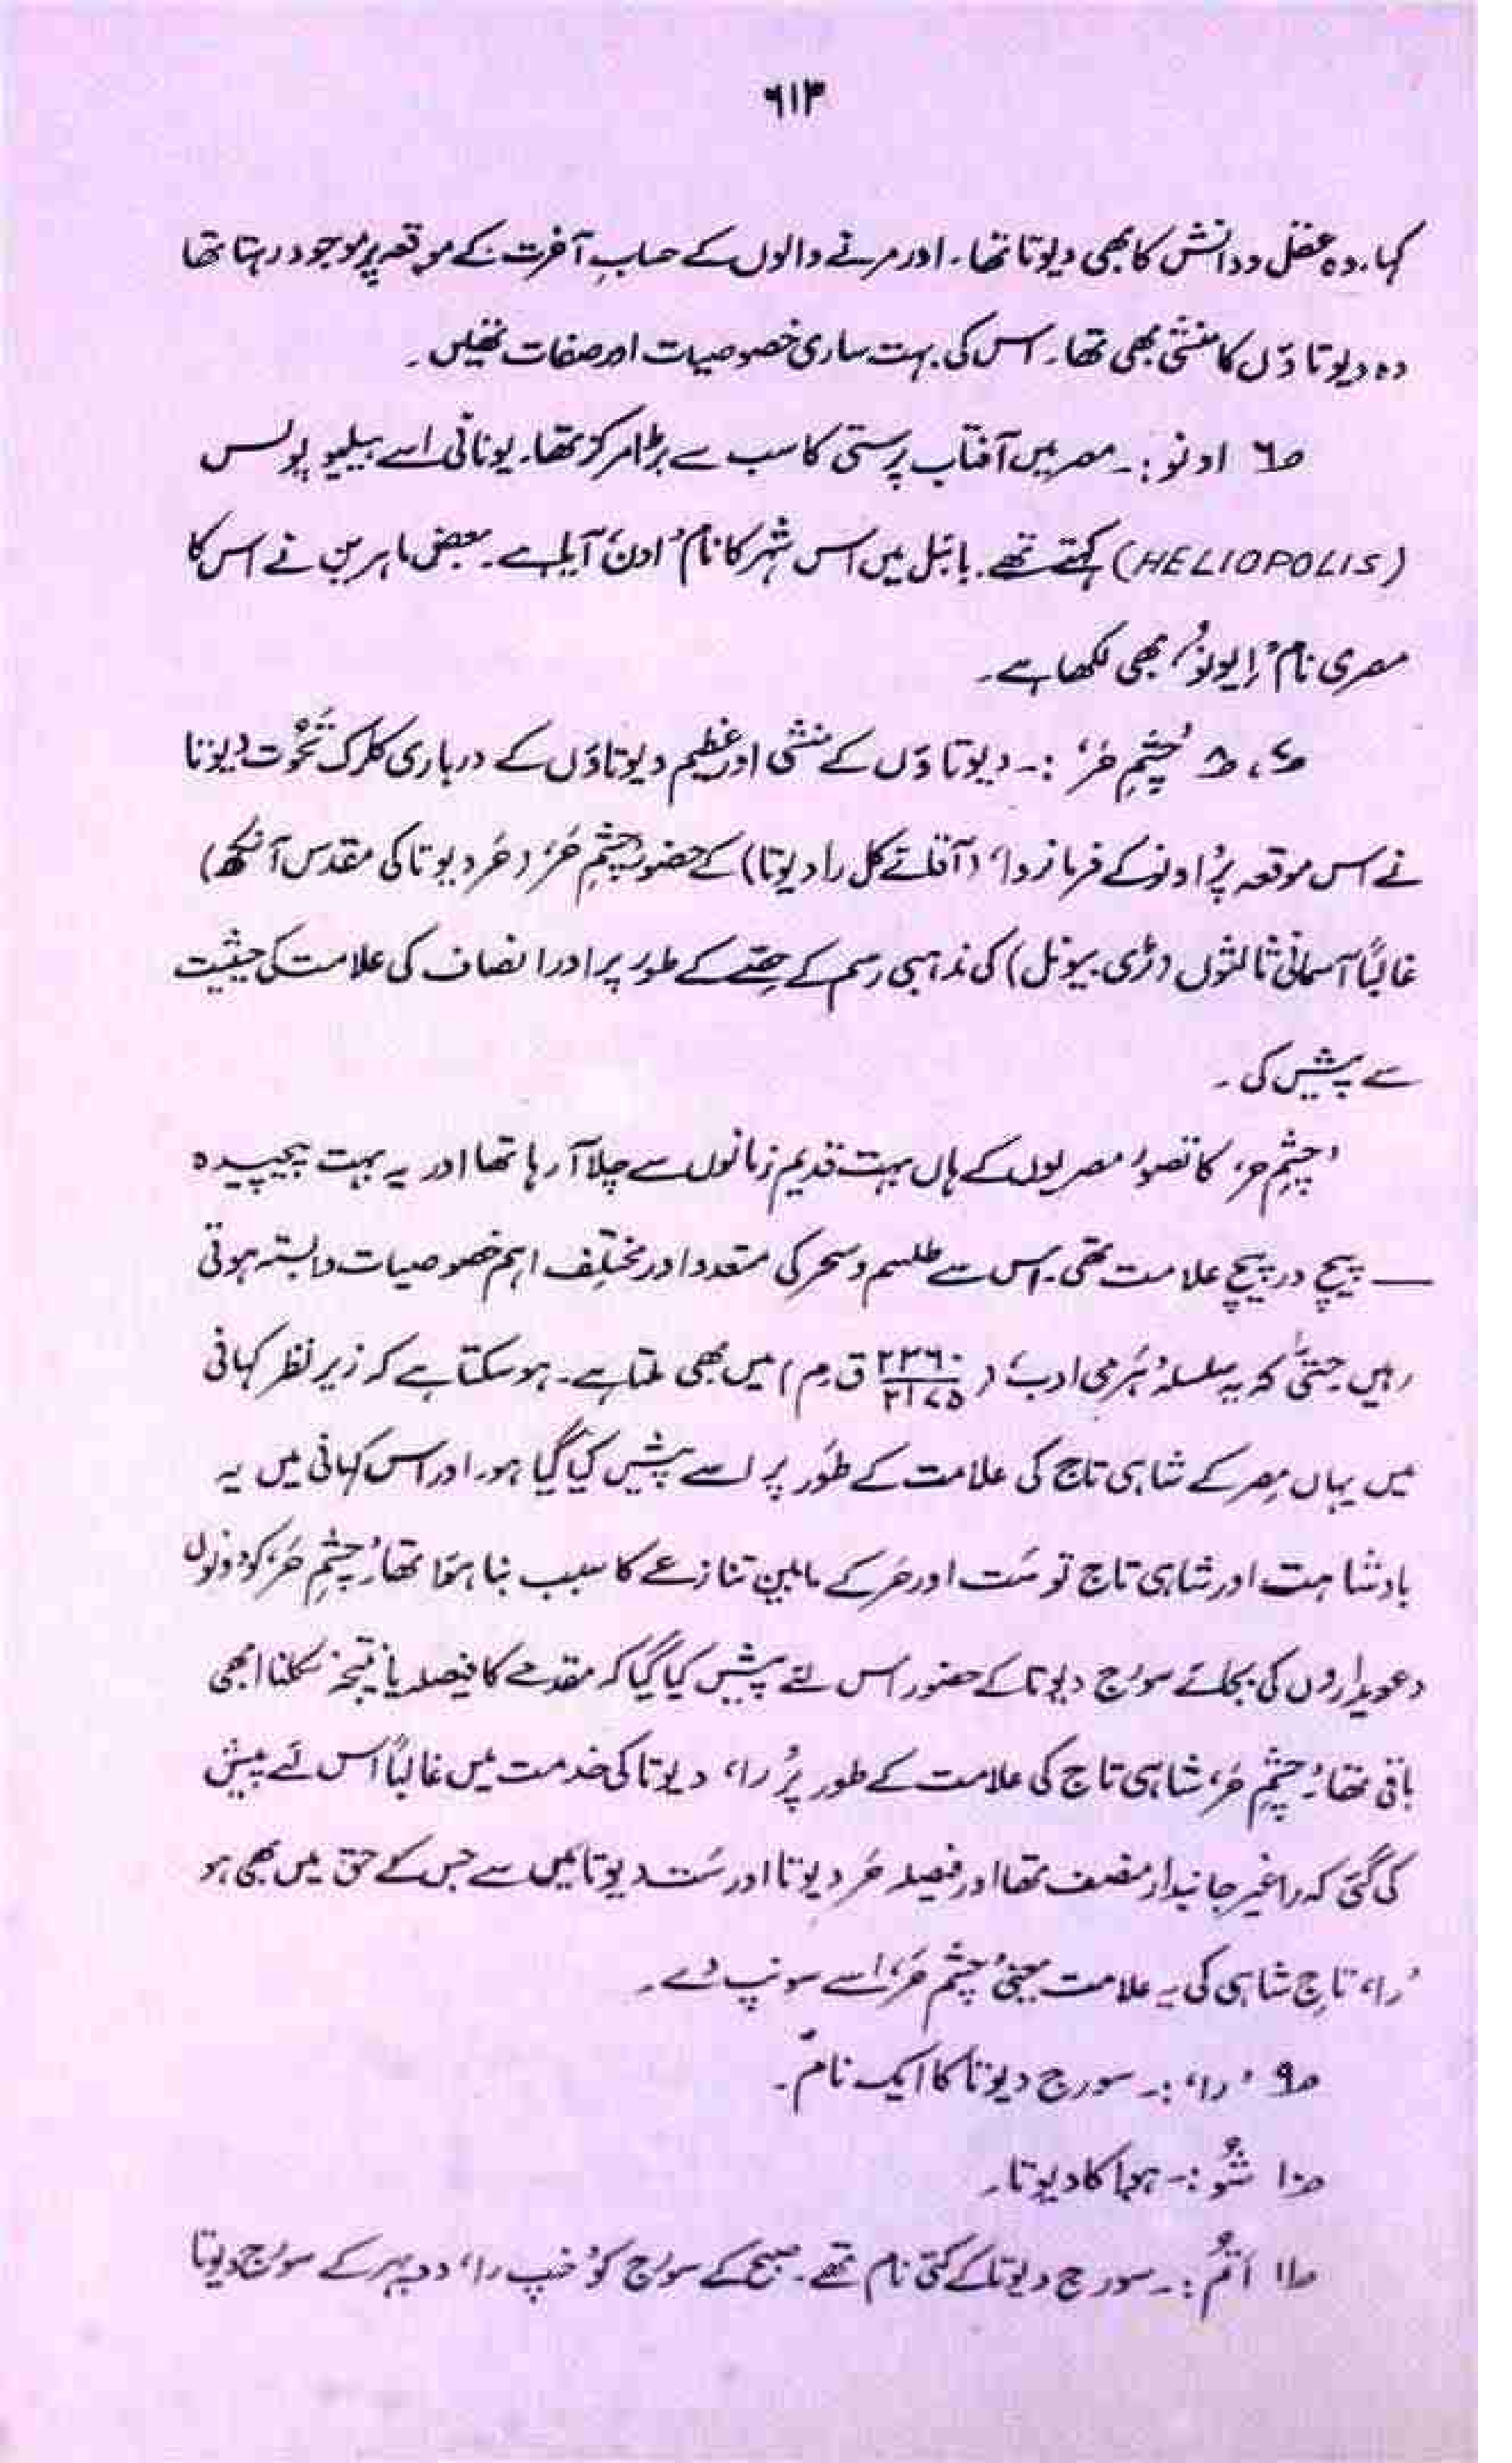 ۶۱۳
کہا۔ وہ عقل و دانش کا بھی دیوتا تھا۔ اور مرنے والوں کے حسابِ آخرت کے موقعہ پر موجود رہتا تھا
وہ دیوتاؤں کا منشی بھی تھا۔ اس کی بہت ساری خصوصیات اور صفات تھیں۔
ص۶ اونو :۔ مصر میں آفتاب پرستی کا سب سے بڑا مرکز تھا۔ یونانی اسے ہیلیو پولس
(HELIOPOLIS) کہتے تھے۔ بائبل میں اس شہر کا نام ’اون‘ آیا ہے۔ بعض ماہرین نے اس کا
مصری نام ’اِیونو‘ بھی لکھا ہے۔
ص۷، ص۸ ’چشمِ حُر‘ :۔ دیوتاؤں کے منشی اور عظیم دیوتاؤں کے درباری کلرک تحُوت دیوتا
نے اس موقعہ پر ’اونو کے فرمانروا‘ (آقائے کل را دیوتا) کے حضور ’چشمِ حُر‘ (حُر دیوتا کی مقدس آنکھ)
غالباً آسمانی ثالثوں (ٹری بیونل) کی مذہبی رسم کے حصّے کے طور پر اور انصاف کی علامت کی حیثیت
سے پیش کی۔
’چشمِ حر‘ کا تصور مصریوں کے ہاں بہت قدیم زمانوں سے چلا آ رہا تھا اور یہ بہت پیچیدہ
— پیچ در پیچ علامت تھی۔ اس سے طلسم و سحر کی متعدد اور مختلف اہم خصوصیات وابستہ ہوتی
رہیں حتیٰ کہ یہ سلسلہ ’ہَرمی ادب‘ (۲۳۶۰/۲۱۷۵ ق۔م) میں بھی ملتا ہے۔ ہو سکتا ہے کہ زیر نظر کہانی
میں یہاں مِصر کے شاہی تاج کی علامت کے طَور پر اسے پیش کیا گیا ہو۔ اور اس کہانی میں یہ
بادشاہت اور شاہی تاج تو سَت اور حُر کے مابین تنازعے کا سبب بنا ہوَا تھا۔ ’چشمِ حُر‘ کو دونوں
دعویداروں کی بجائے سورج دیوتا کے حضور اس لئے پیش کیا گیا کہ مقدمے کا فیصلہ یا نتیجہ نکلنا ابھی
باقی تھا۔ ’چشمِ حُر‘ شاہی تاج کی علامت کے طور پر ’را‘ دیوتا کی خدمت میں غالباً اس لئے پیش
کی گئی کہ را غیر جانبدار منصف تھا اور فیصلہ حُر دیوتا اور سَت دیوتا میں سے جس کے حق میں بھی ہو
’را‘ تاجِ شاہی کی یہ علامت یعنی ’چشم حُر‘ اسے سونپ دے۔
ص۹ ’را‘ :۔ سورج دیوتا کا ایک نام۔
ص۱۰ شُو :۔ ہوا کا دیوتا۔
ص۱۱ اَتُم :۔ سورج دیوتا کے کئی نام تھے۔ صبح کے سورج کو ’خپ را‘ دوپہر کے سورج دیوتا